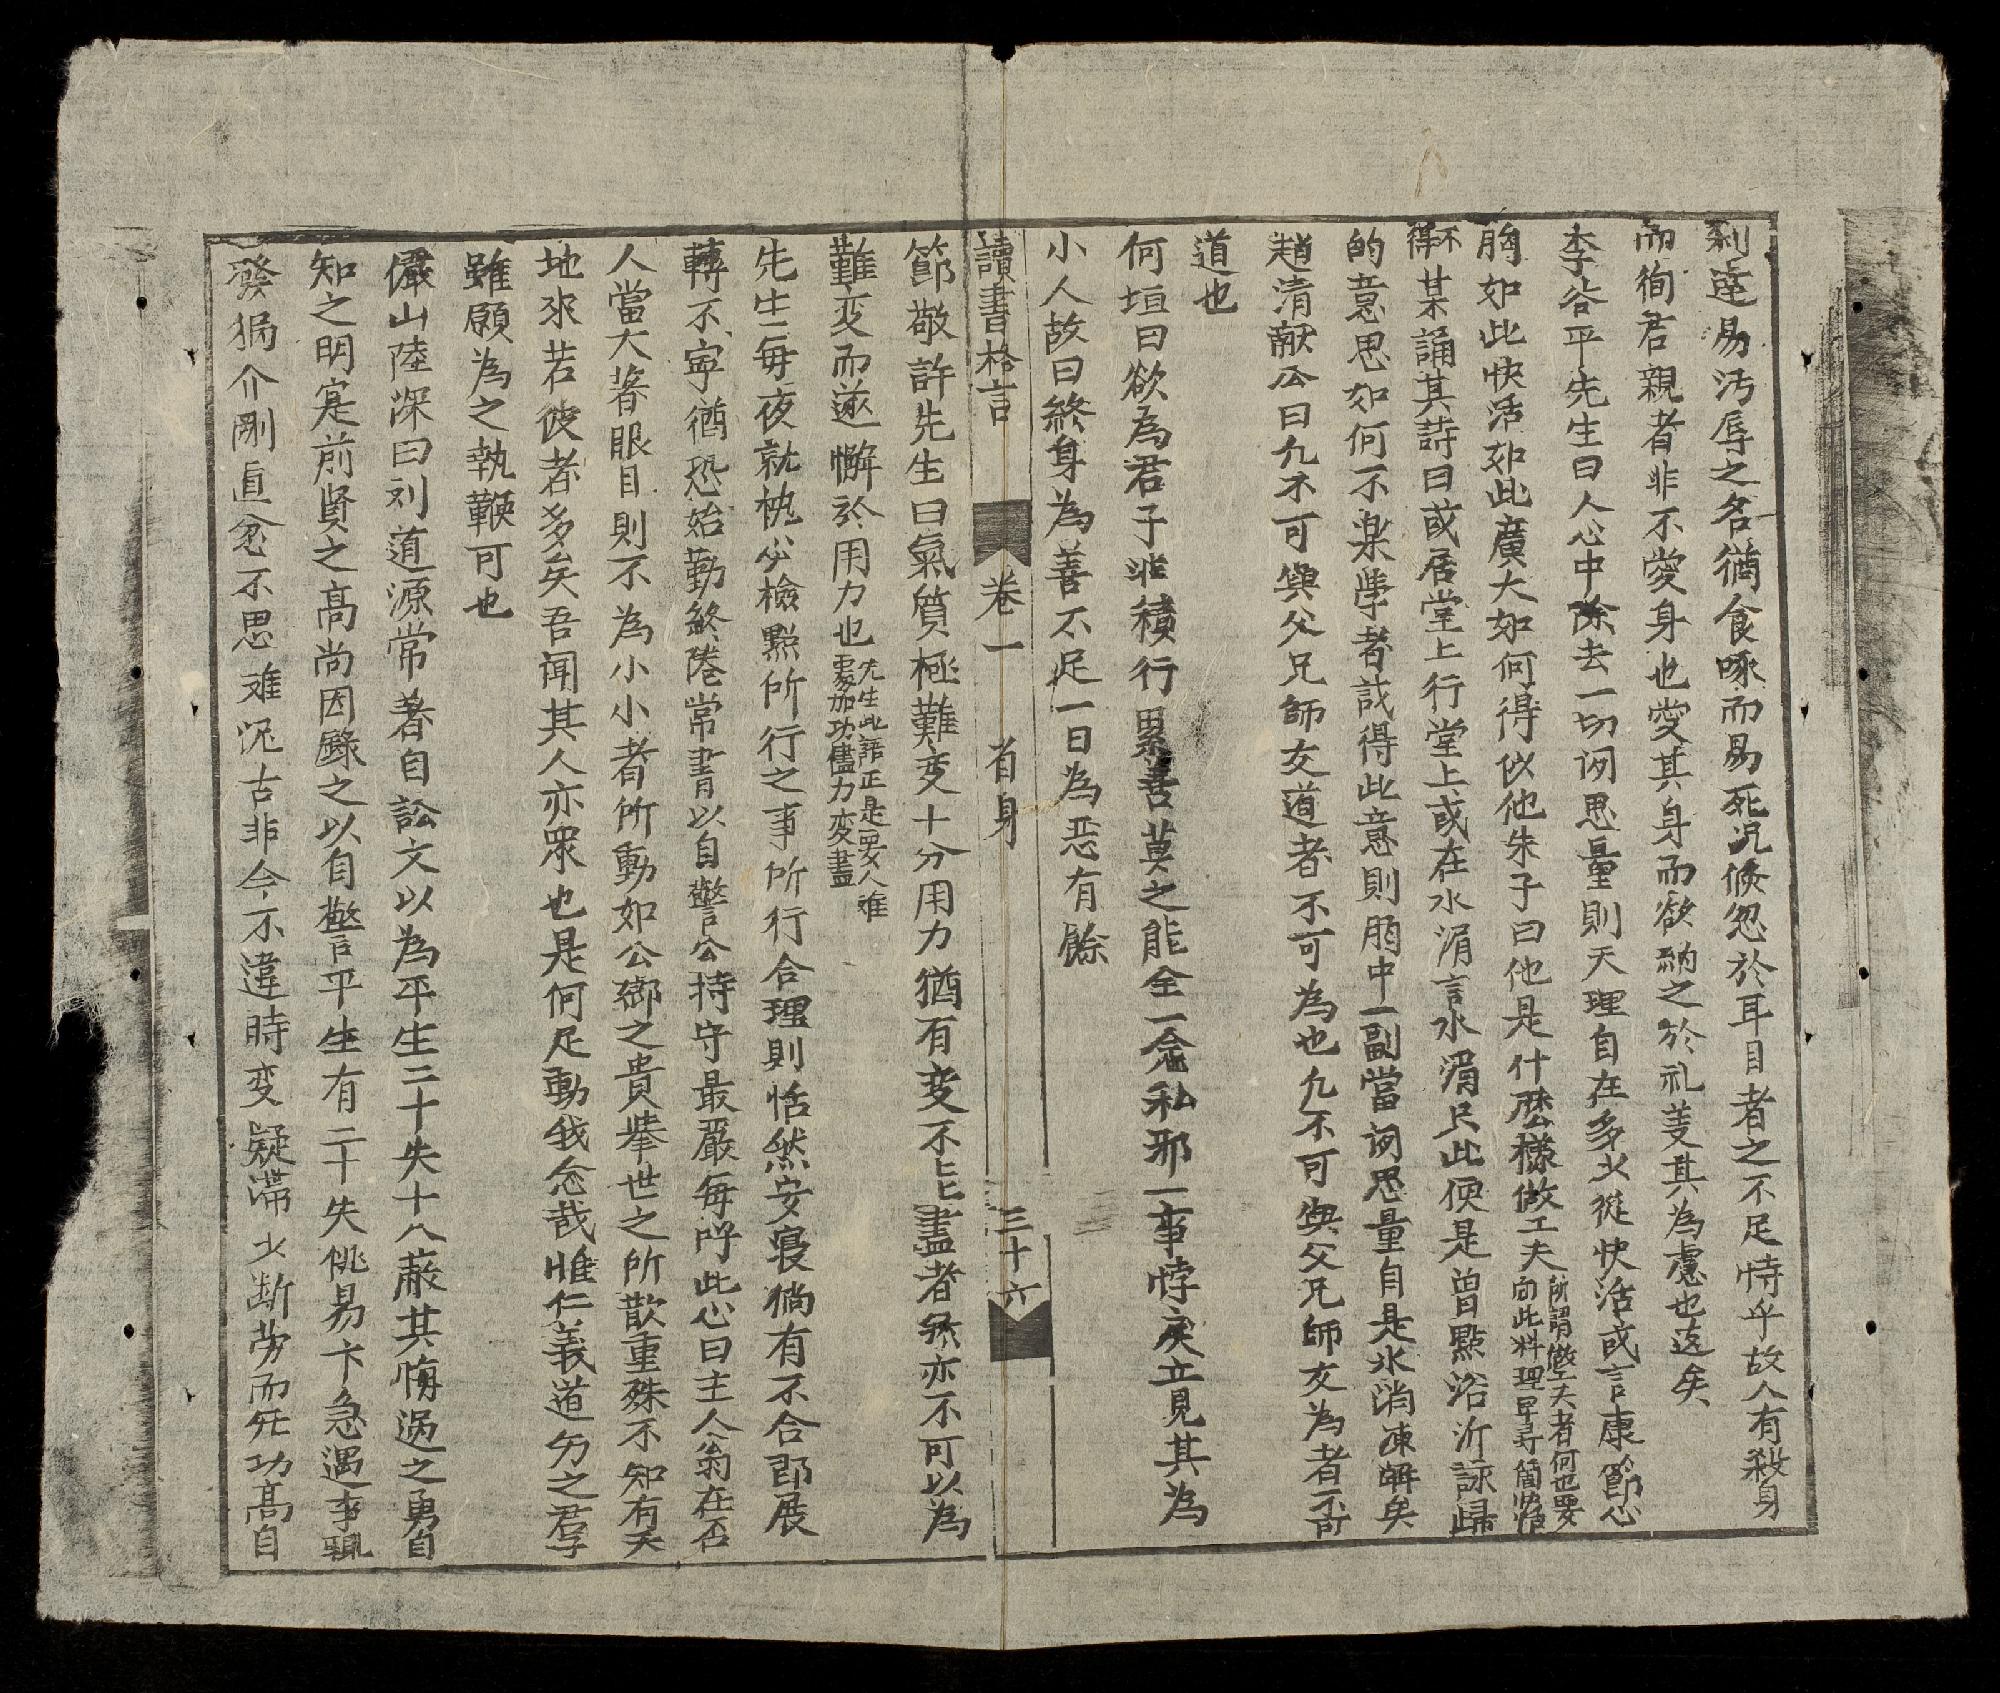 剥達易汚辱之名猶食啄而易死况倏忽於耳目者之不足恃乎故人有殺身
而徇君親者非不愛身也愛其身而欲納之於礼羙其為慮也遠矣
李谷平先生曰人心中除去一切闲思量則天理自在多少從快活或言康節心
胸如此快活如此廣大如何得似他朱子曰他是什麽樣做工夫所謂做工夫者何也要
向此料理早尋箇快活
不得某誦其詩曰或居堂上行堂上或在水湄言水湄只此便是曾點浴沂詠歸
的意思如何不楽學者誠得此意則胸中一副當闲思量自是氷消凍解矣
趙清献公曰凢不可與父兄師友道者不可為也凢不可與父兄師友為者不可
道也
何垣曰欲為君子非積行累善莫之能全一念私邪一事悖戾立見其為
小人故曰終身為善不足一日為恶有餘
讀書格言 卷一 省身 三十六
節敬許先生曰氣質極難变十分用力猶有变不能盡者然亦不可以為
難变而遂懈於用力也先生此語正是要人难
處加功儘力变盡
先生二每夜就枕必檢點所行之事所行合理則恬然安寝倘有不合即展
轉不寧猶恐始勤終倦常書以自警公持守最嚴每呼此心曰主人翁在否
人當大著眼目則不為小小者所動如公卿之貴舉世之所歆重殊不知有天
地來若彼者多矣吾闻其人亦眾也是何足動我念哉惟仁義道㝍之君子
雖願為之執鞭可也
儼山陸深曰刘道源常著自訟文以為平生二十失十八蔽其悔過之勇自
知之明寔前賢之高尚因錄之以自警平生有二十失佻易卞急遇事輒
發狷介剛直忿不思难泥古非今不達時变疑滞少断劳而无功高自